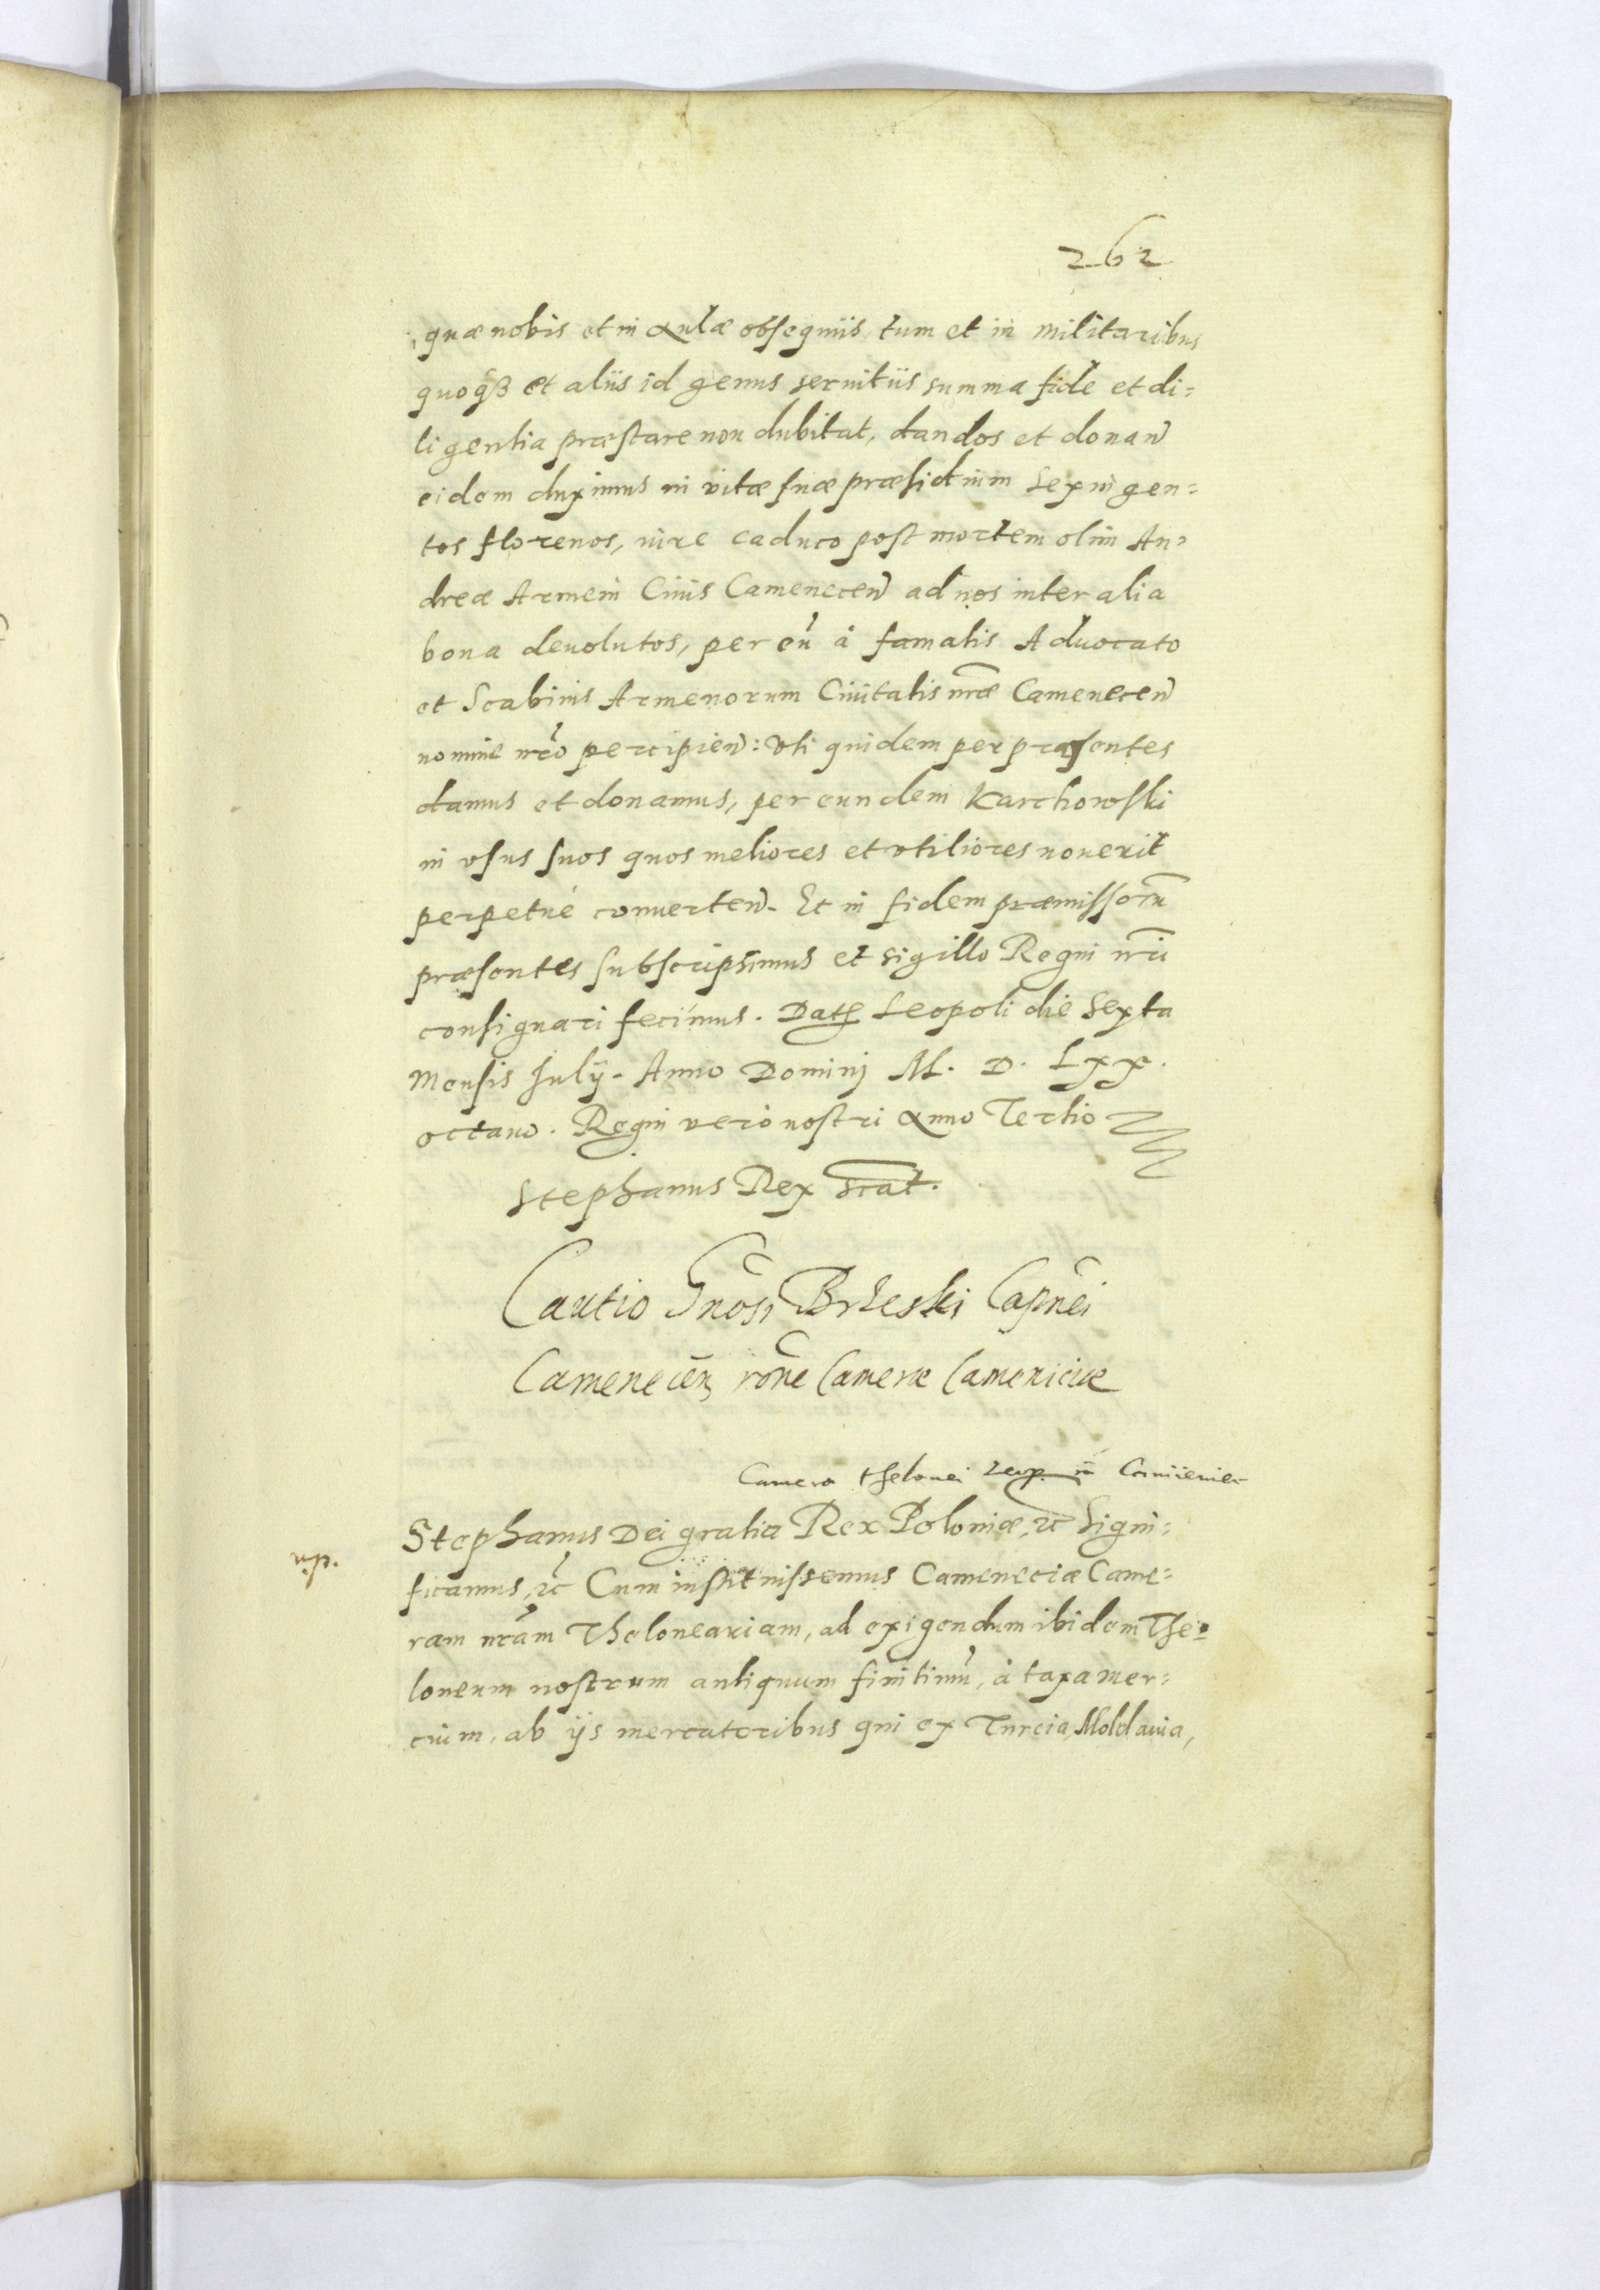 262
quæ nobis et in Aulæ obsequiis, tum et in militaribus
quoqꝫ et aliis id genus seruitiis summa fide et di=
ligentia præstare non dubitat, dandos et donan̄
eidem duximus in vitæ suæ præsidium sexingen=
tos florenos, iure caduco post mortem olim An=
dreæ Armeni Ciuis Camenecen̄ ad nos inter alia
bona deuolutos, per eū à famatis Aduocato
et Scabinis Armenorum Ciuitatis nr̄æ Camenecen̄
nomine nr̄o percipien̄: Vti quidem per præsentes
damus et donamus, per eundem Karchowski
in vsus suos quos meliores et vtiliores nouerit
perpetué conuerten̄. Et in fidem præmissorū
præsentes subscripsimus et sigillo Regni nr̄i
consignari fecimus. Dat Leopoli die Sexta
Mensis Julij. Anno Dominj M. D. Lxx.
octauo. Regni veró nostri Anno Tertio
Stephanus Rex scāt.
Cautio Gn̄osi Brzeski Capn̄ei
Camenecen̄ rōne Cameræ Cameniciæ
Camera thelonei in Camieniec
Stephanus Dei gratia Rex Poloniæ, ꝛc̄ Signi=
ficamus, ꝛc̄ Cum instituissemus Cameneciæ Came=
ram nr̄am Theloneariam, ad exigendum ibidem The=
loneum nostrum antiquum finitimū, à taxa mer=
cium, ab ijs mercatoribus qui ex Turcia, Moldauia,